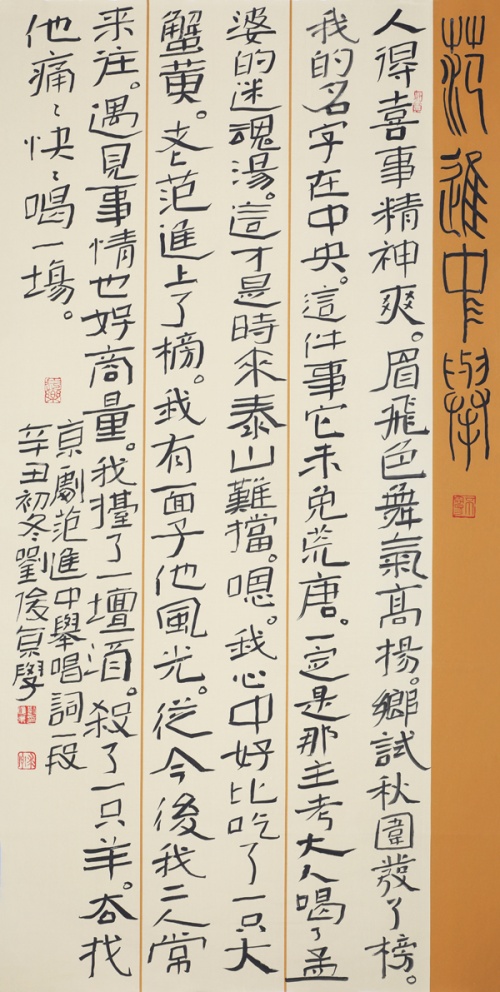 范進中舉
人得喜事精神爽。眉飛色舞氣高揚。鄉試秋圍發了榜。
我的名字在中央。這件事它未免荒唐。一定是那主考大人喝了孟
婆的迷魂湯。這才是時來泰山難擋。嗯。我心中好比吃了一只大
蟹黄。老范進上了榜。我有面子他風光。從今後我二人常
来往。遇見事情也好商量。我擡了一壇酒。殺了一只羊。去找
他痛〻快〻喝一場。
京劇范進中舉唱詞一段
辛丑初冬劉俊京學